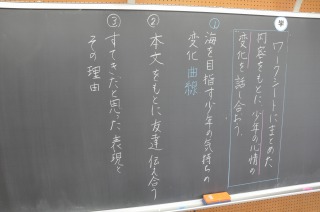 学
ワークシートにまとめた
内容をもとに、少年の心情の
変化を話し合おう。
① 海を目指す少年の気持ちの
変化 曲線
② 本文をもとに友達伝え合う
③ すてきだと思った表現と
その理由